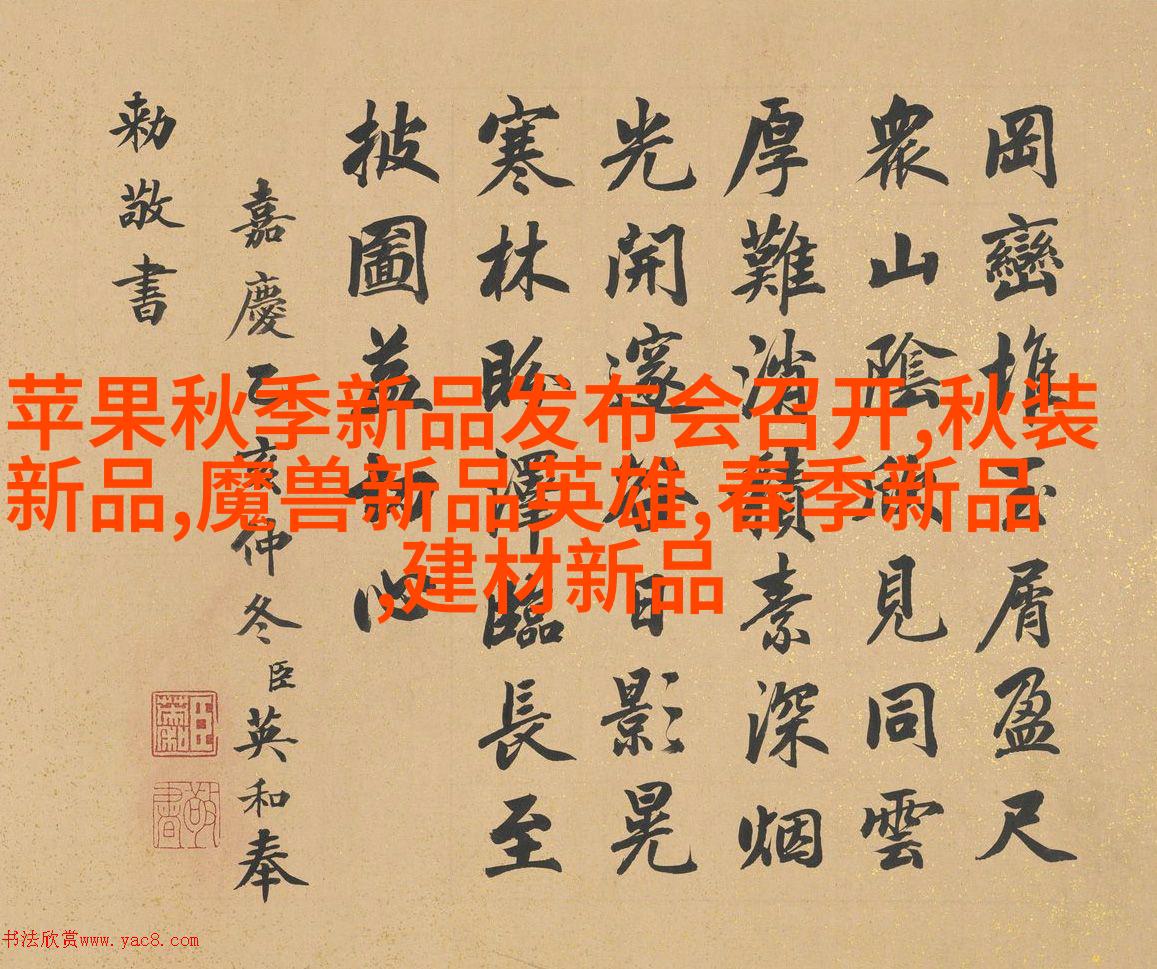 岡巒堆玉屑盈尺
衆山陰見同雲
厚難消積素深烟
光開邃谷日影晃
寒林澤臨長至
披圖益心
嘉慶乙亥仲冬臣英和奉
勅敬書
苹果秋季新品发布会召开,秋装
新品,魔兽新品英雄,春季新品
,建材新品
书法欣赏www.yac8.com